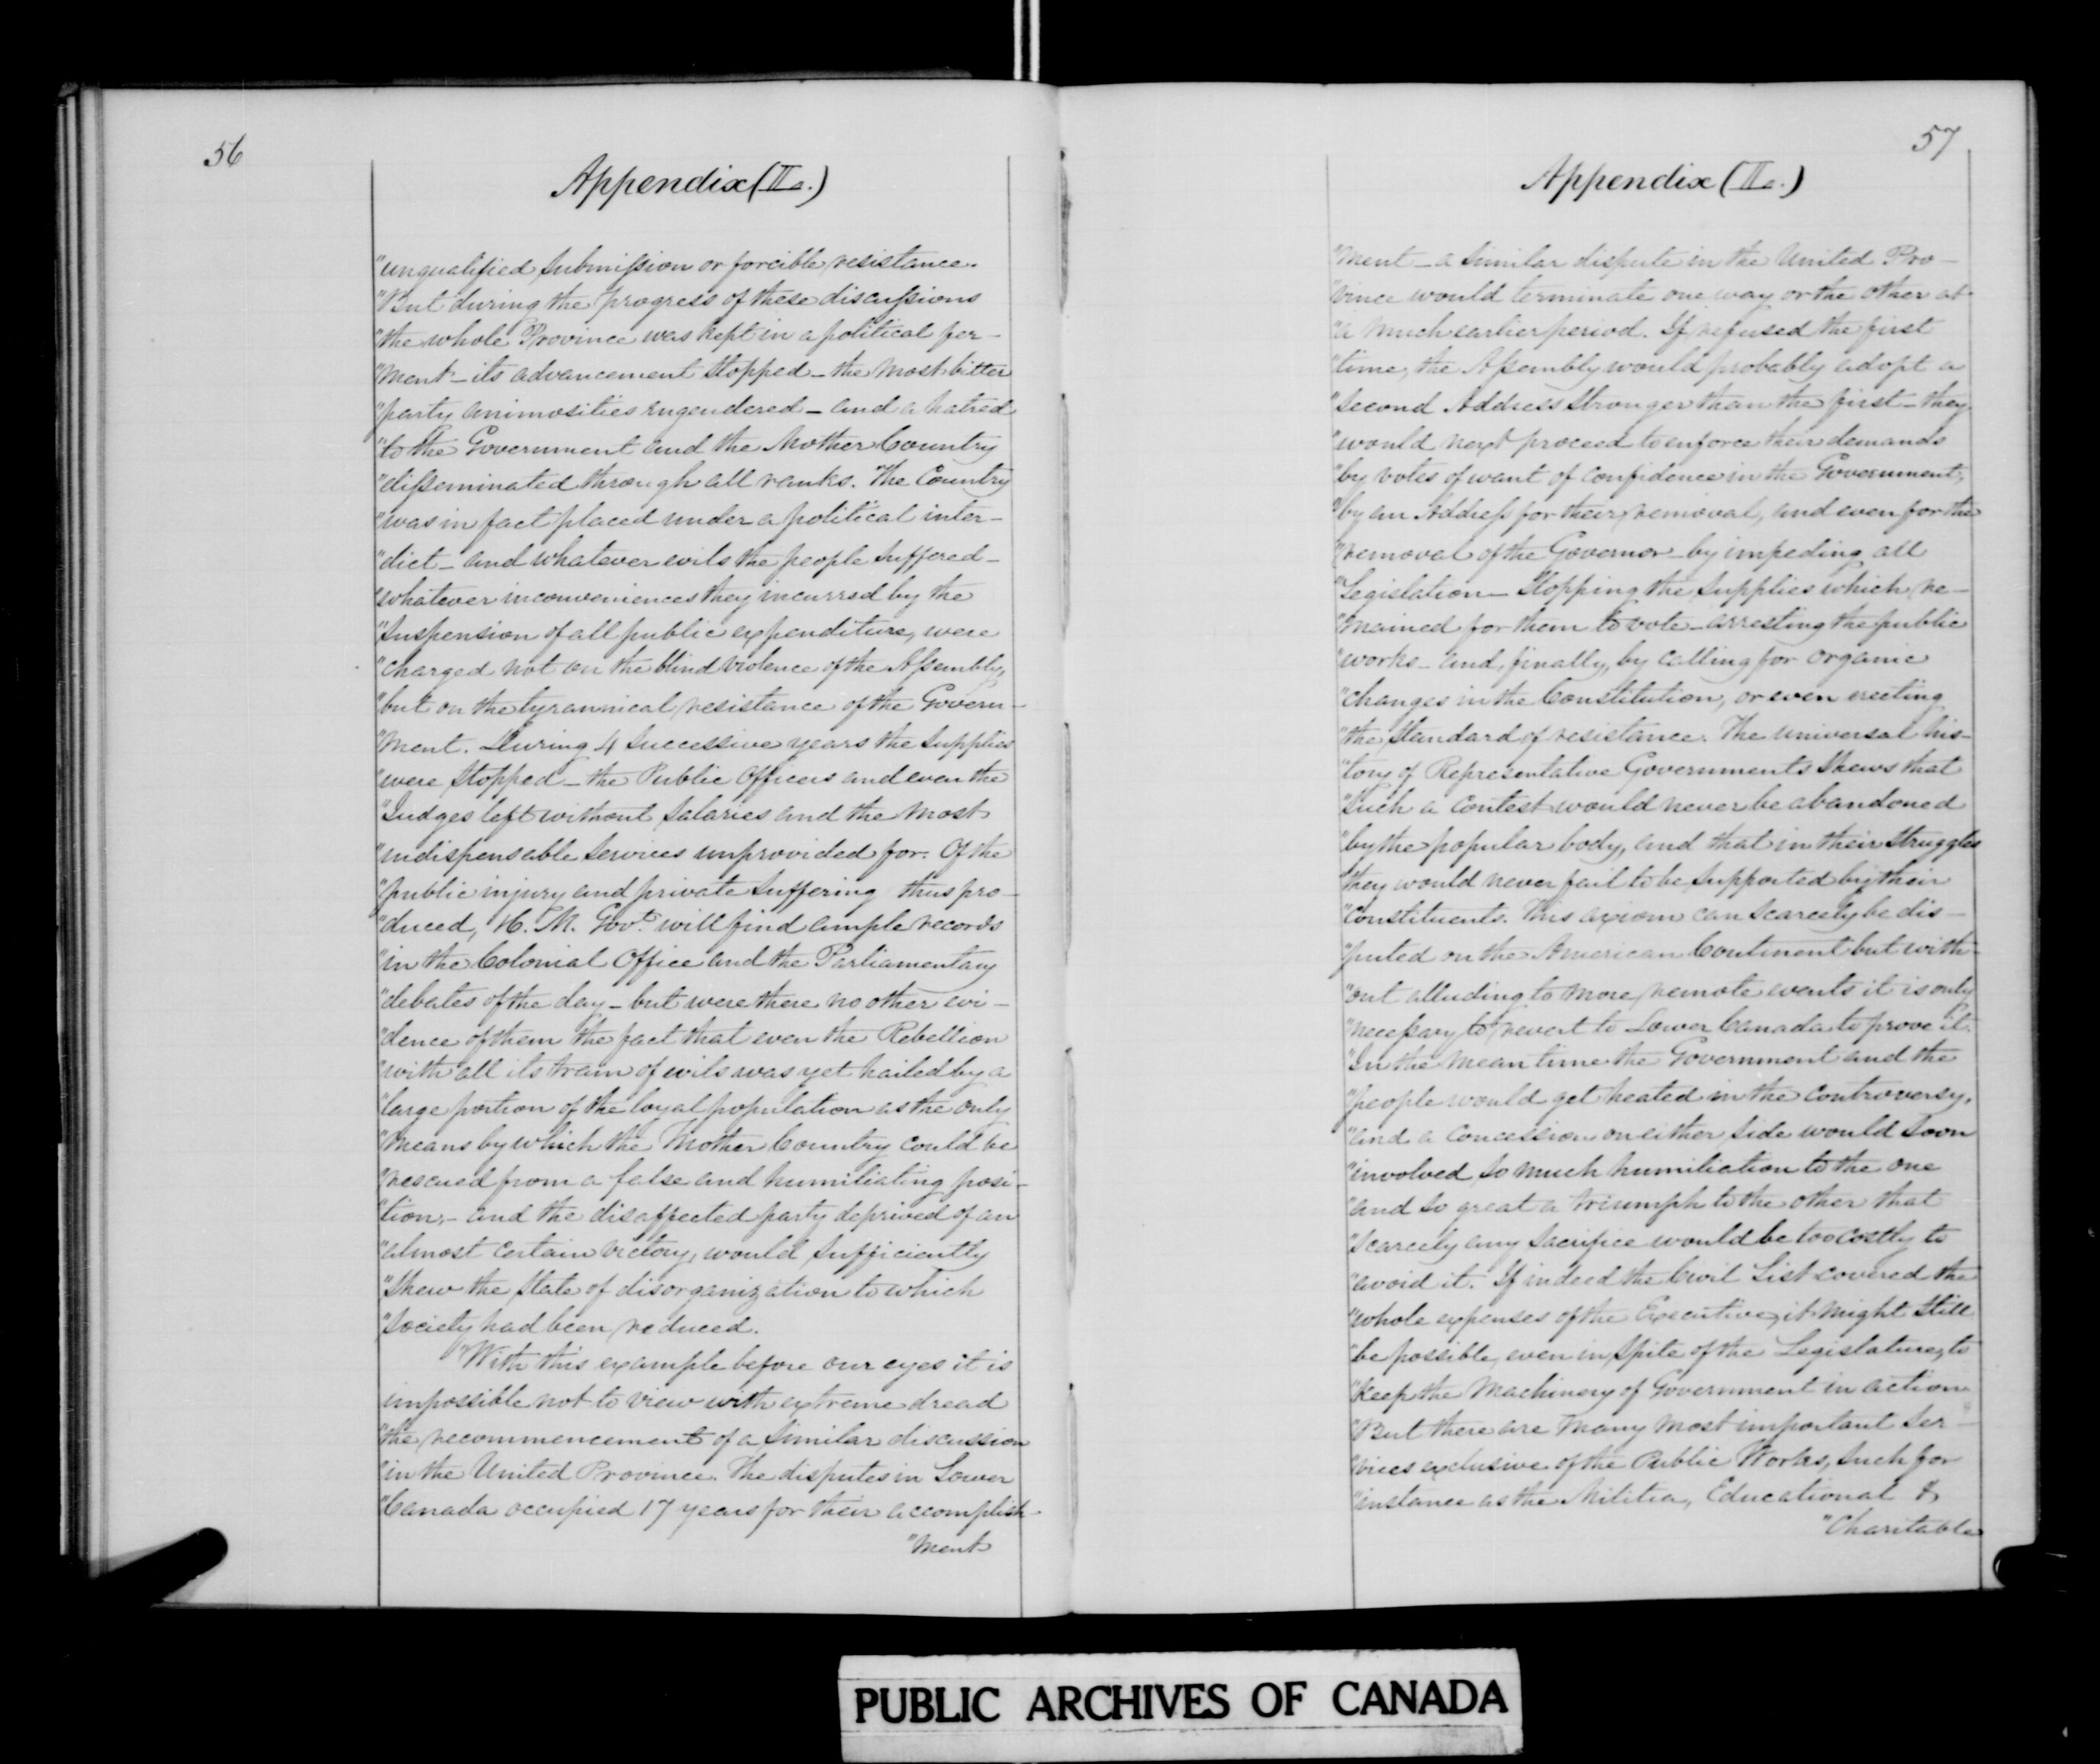 56
Appendix (IIa.)
"unqualified submission or forcible resistance.
"But during the progress of these discussions
"the whole Province was kept in a political fer-
"ment - its advancement stopped - the most bitter
"party animosities engendered - and a hatred
"to the Government and the Mother Country
"disseminated through all ranks. The Country
"was in fact placed under a political inter-
"dict - and whatever evils the people suffered -
"whatever inconveniences they incurred by the
"suspension of all public expenditure, were
"charged not on the blind violence of the Assembly,
"but on the tyrannical resistance of the Govern-
"ment. During 4 successive years the supplies
"were stopped - the Public Officers and even the
"Judges left without salaries and the most
"indispensable services unprovided for. Of the
"public injury and private suffering thus pro-
"duced, H. M. Govt. will find ample records
"in the Colonial Office and the Parliamentary
"debates of the day - but were there no other evi-
"dence of them the fact that even the Rebellion
"with all its train of evils was yet hailed by a
"large portion of the loyal population as the only
"means by which the Mother Country could be
"rescued from a false and humiliating posi-
"tion, - and the disaffected party deprived of an
"almost certain victory, would sufficiently
"shew the state of disorganization to which
"society had been reduced.
"With this example before our eyes it is
impossible not to view with extreme dread
"the recommencement of a similar discussion
"in the United Province. The disputes in Lower
"Canada occupied 17 years for their accomplish-
"ment
57
Appendix (IIa.)
"ment - a similar dispute in the United Pro-
"vince would terminate one way or the other at
"a much earlier period. If refused the first
"time, the Assembly would probably adopt a
"second Address stronger than the first - they
"would next proceed to enforce their demands
"by votes of want of confidence in the Government,
"by an Address for their removal, and even for the
"removal of the Governor - by impeding all
"Legislation - stopping the supplies which re-
"mained for them to vote - arresting the public
"works - and, finally, by calling for organic
"changes in the Constitution, or even erecting
"the standard of resistance. The universal his-
"tory of Representative Governments shews that
"such a contest would never be abandoned
"by the popular body, and that in their struggles
"they would never fail to be supported by their
"constituents. This axiom can scarcely be dis-
"puted on the American Continent but with-
"out alluding to more remote events it is only
"necessary to revert to Lower Canada to prove it.
"In the mean time the Government and the
"people would get heated in the controversy,
"and a concession on either side would soon
"involved so much humiliation to the one
"and so great a triumph to the other that
"scarcely any sacrifice would be too costly to
"avoid it. If indeed the Civil List covered the
"whole expenses of the Executive, it might still
"be possible, even in spite of the Legislature, to
"keep the machinery of Government in action
"But there are many most important ser-
"vices exclusive of the Public Works, such for
"instance as the Militia, Educational &
"Charitable
PUBLIC ARCHIVES OF CANADA